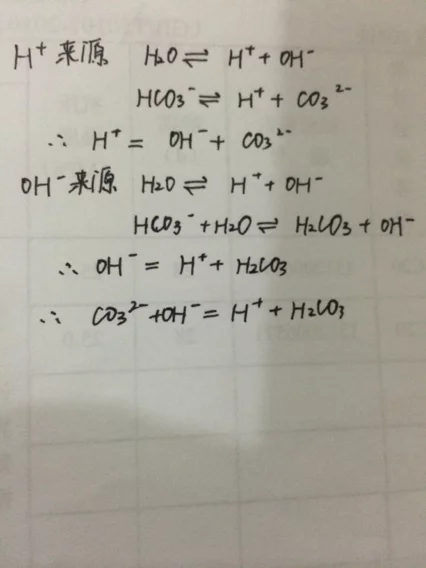 H⁺来源 H₂O ⇌ H⁺ + OH⁻
HCO₃⁻ ⇌ H⁺ + CO₃²⁻
∴ H⁺ = OH⁻ + CO₃²⁻
OH⁻来源 H₂O ⇌ H⁺ + OH⁻
HCO₃⁻ + H₂O ⇌ H₂CO₃ + OH⁻
∴ OH⁻ = H⁺ + H₂CO₃
∴ CO₃²⁻ + OH⁻ = H⁺ + H₂CO₃